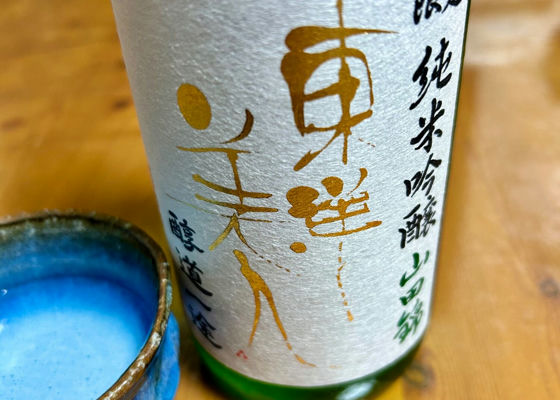 純米吟醸 山田錦
東洋
美人
醇道一途